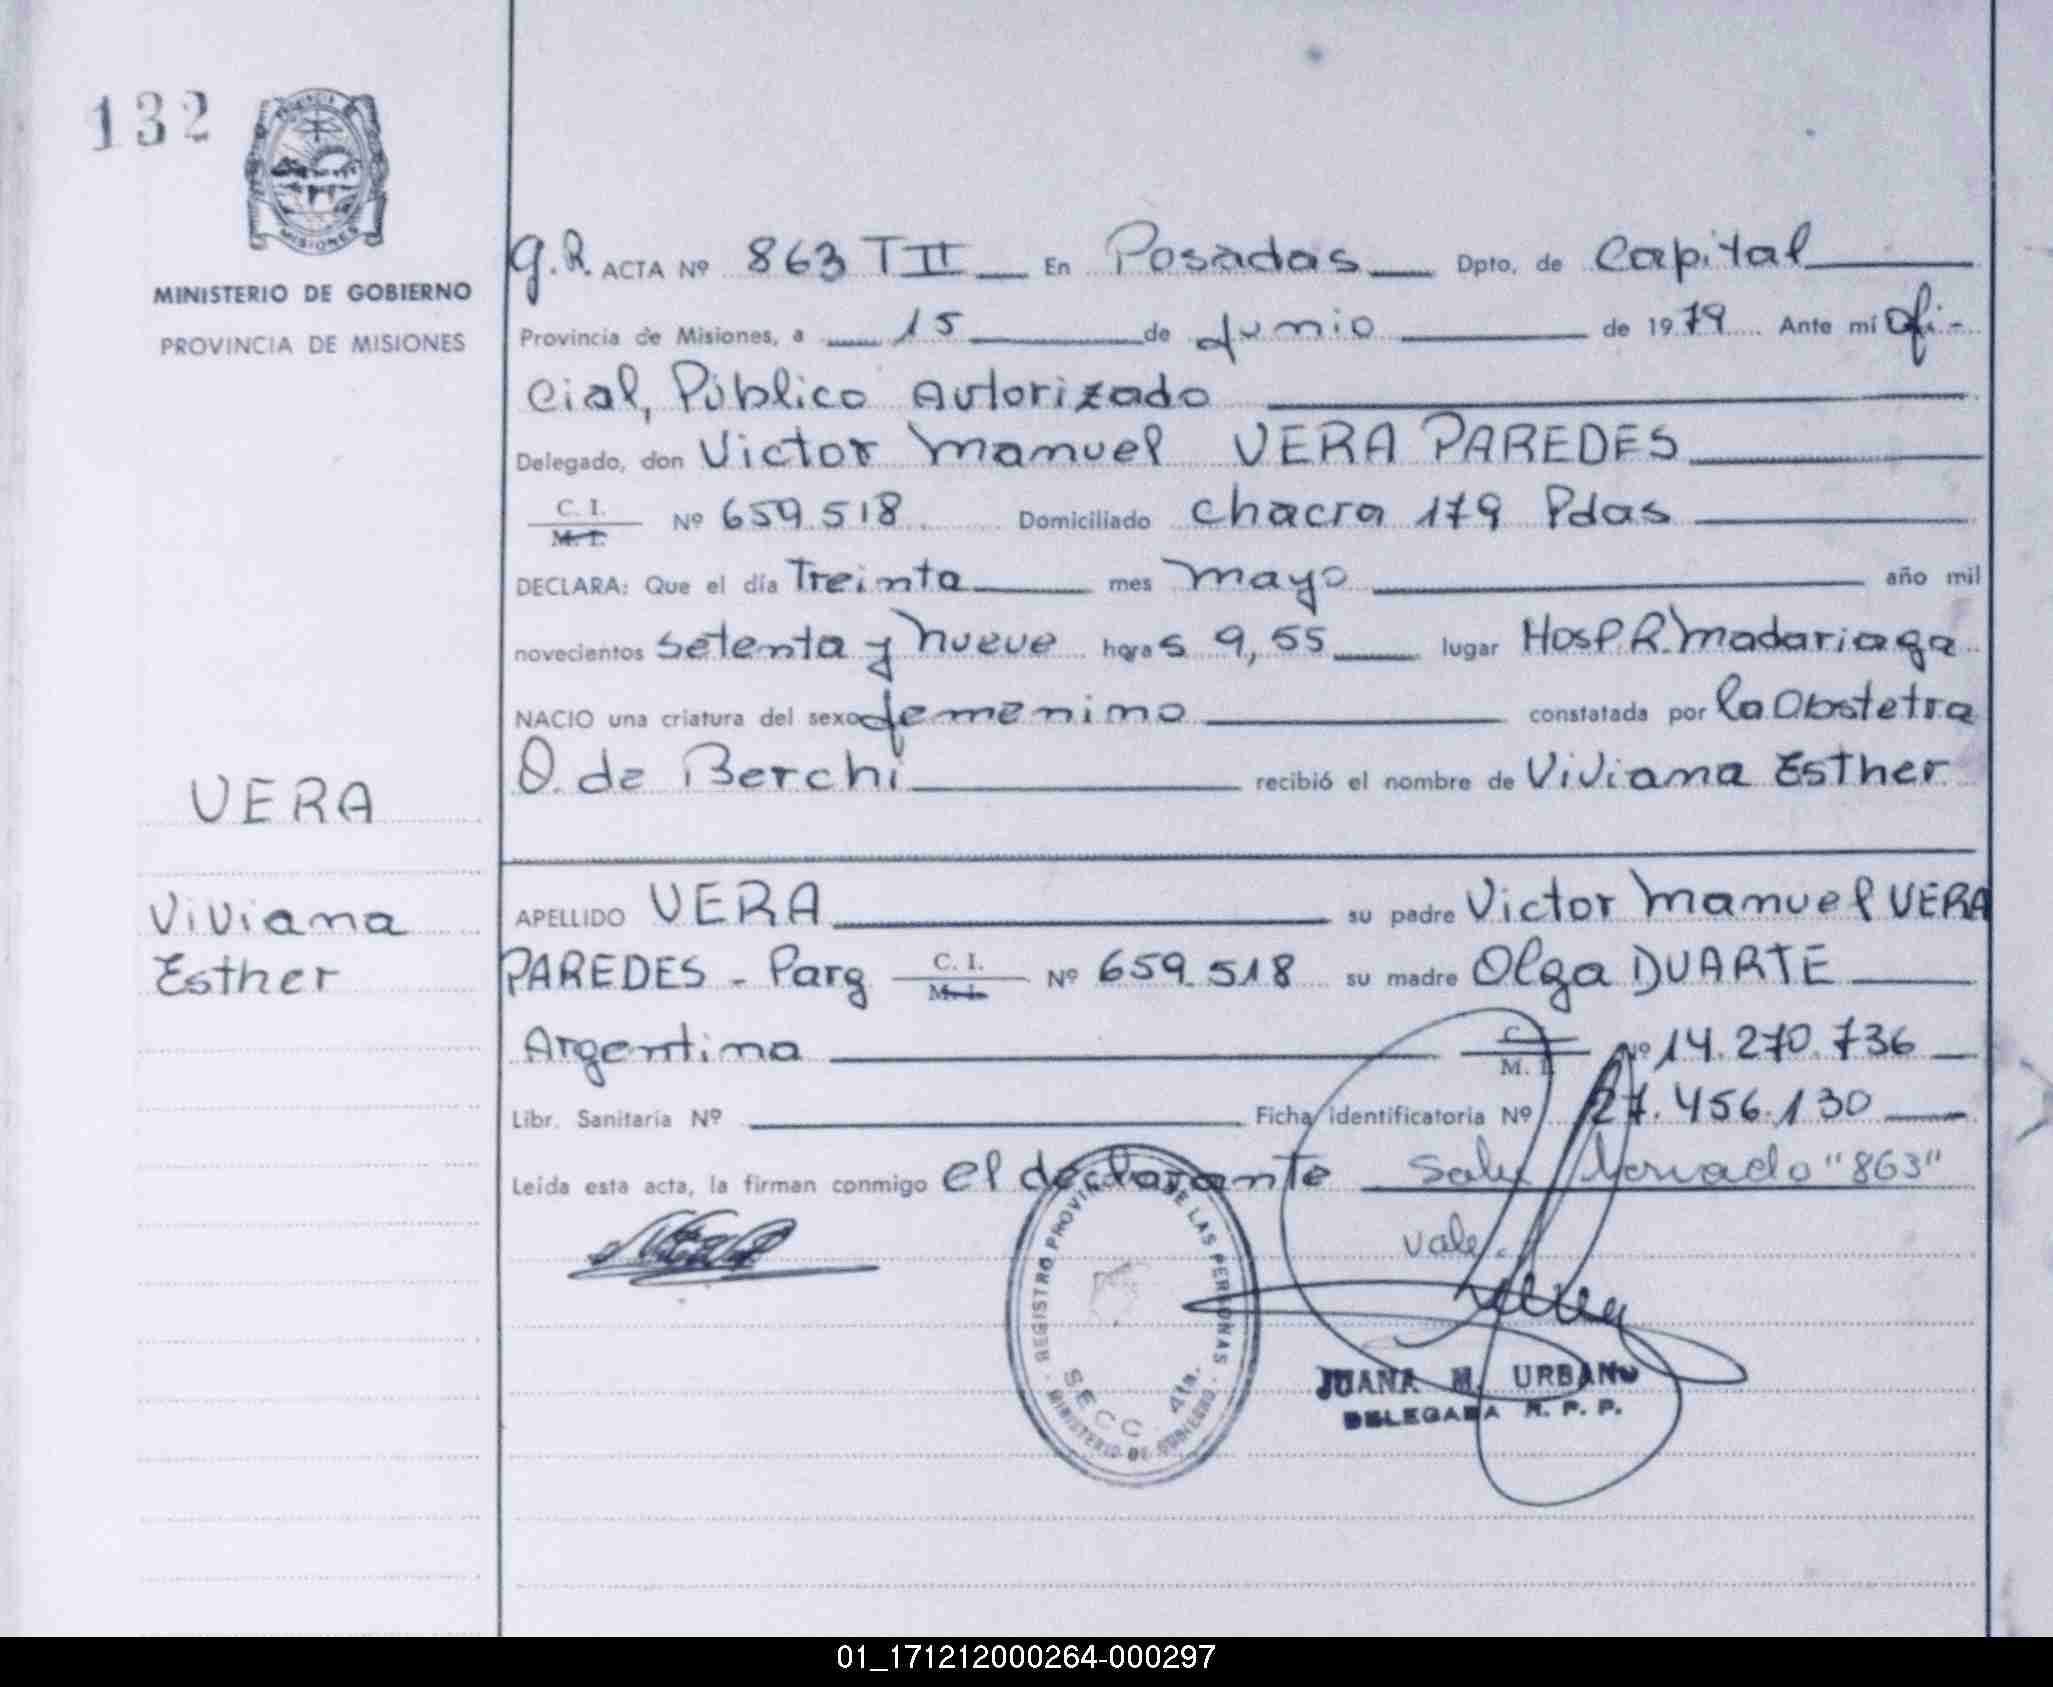 132
MISIONES
MINISTERIO DE GOBIERNO
PROVINCIA DE MISIONES
VERA
Viviana
Esther
g.R. ACTA Nº 863 T II En Posadas Dpto. de Capital
Provincia de Misiones, a 15 de Junio de 1979 Ante mí Ofi-
cial, Público Autorizado
Delegado, don Victor Manuel VERA PAREDES
C. I. M. I. Nº 659.518 Domiciliado Chacra 179 Pdas
DECLARA: Que el día Treinta mes Mayo año mil
novecientos setenta y nueve horas 9,55 lugar Hosp.R.Madariaga
NACIO una criatura del sexo femenino constatada por la Obstetra
O. de Berchi recibió el nombre de Viviana Esther
APELLIDO VERA su padre Victor Manuel VERA
PAREDES - Parg C. I. M. I. Nº 659.518 su madre Olga DUARTE
Argentina C. I. M. I. Nº 14.270.736
Libr. Sanitaria Nº Ficha identificatoria Nº 27.456.130
Leída esta acta, la firman conmigo el declarante "863"
Vale.
REGISTRO PROVINCIAL DE LAS PERSONAS
SECC. 4ta.
MINISTERIO DE GOBIERNO
JUANA M. URBANO
DELEGADA R. P. P.
01_171212000264-000297